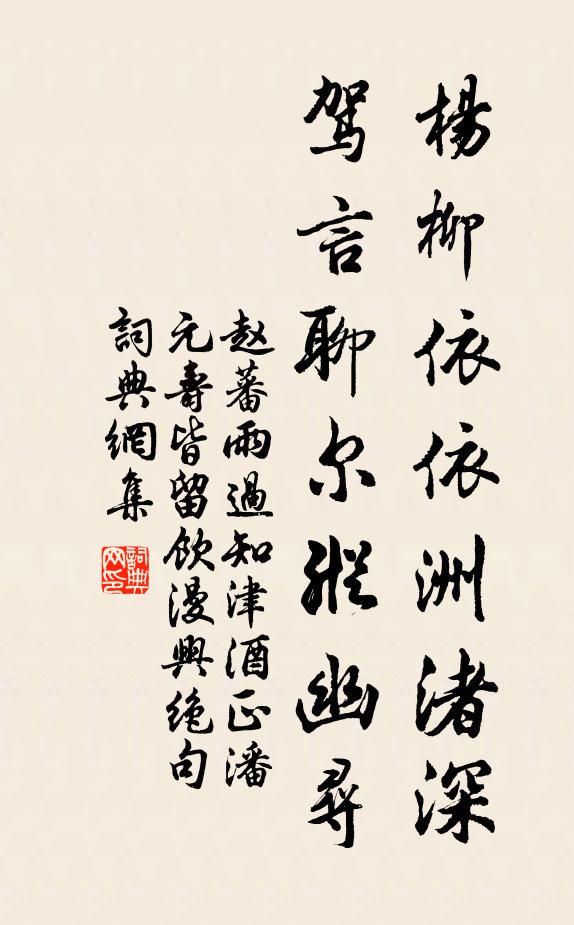 楊柳依依洲渚深
駕言聊尔縱幽尋
赵蕃雨過知津酒正潘
元壽皆留飲漫興絶句
詞典網集
詞典网印